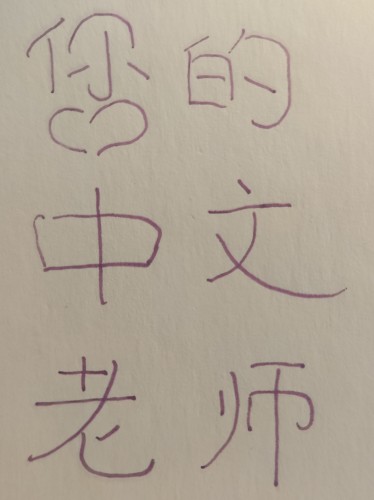 您的
中文
老师